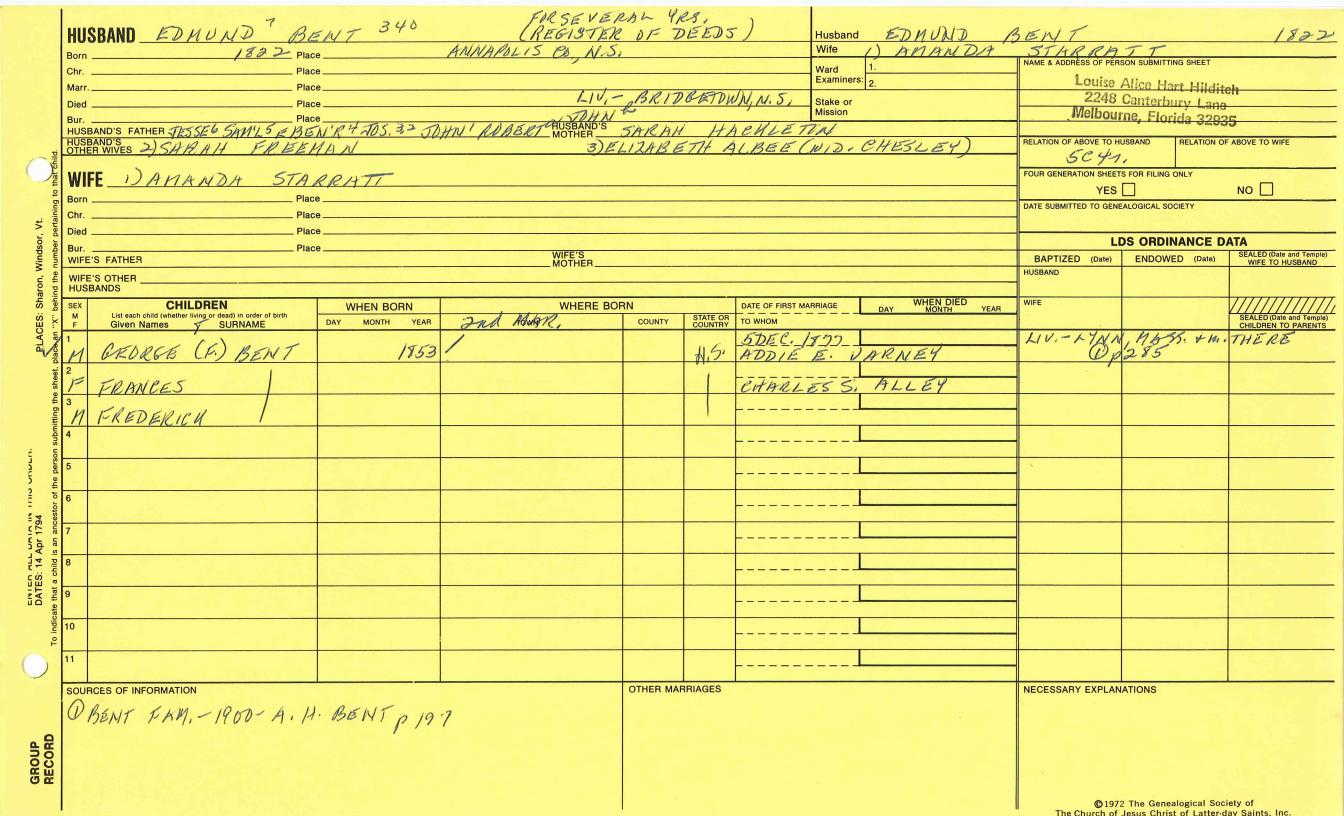 HUSBAND EDMUND 7 BENT 340
FOR SEVERAL YRS.
(REGISTER OF DEEDS)
Born 1822 Place ANNAPOLIS CO, N.S.
Chr. Place
Marr. Place
Died Place LIV.- BRIDGETOWN, N.S.
Bur. Place
HUSBAND'S FATHER JESSE6 SAM'L5 BEN'R4 JOS.32 JOHN1 ROBERT JOHN
HUSBAND'S MOTHER SARAH HACKLETIN
HUSBAND'S OTHER WIVES 2) SARAH FREEMAN 3) ELIZABETH ALBEE (WID. CHESLEY)
WIFE 1) AMANDA STARRATT
Born Place
Chr. Place
Died Place
Bur. Place
WIFE'S FATHER WIFE'S MOTHER
WIFE'S OTHER HUSBANDS
Husband EDMUND BENT 1822
Wife 1) AMANDA STARRATT
Ward Examiners: 1.
2.
Stake or Mission
NAME & ADDRESS OF PERSON SUBMITTING SHEET
Louise Alice Hart Hilditch
2248 Canterbury Lane
Melbourne, Florida 32935
RELATION OF ABOVE TO HUSBAND RELATION OF ABOVE TO WIFE
5C4r.
FOUR GENERATION SHEETS FOR FILING ONLY
YES NO
DATE SUBMITTED TO GENEALOGICAL SOCIETY
LDS ORDINANCE DATA
BAPTIZED (Date) ENDOWED (Date) SEALED (Date and Temple) WIFE TO HUSBAND
HUSBAND
WIFE
SEALED (Date and Temple) CHILDREN TO PARENTS
SEX M F
CHILDREN
List each child (whether living or dead) in order of birth
Given Names SURNAME
WHEN BORN
DAY MONTH YEAR
WHERE BORN
2nd MAR. COUNTY STATE OR COUNTRY
DATE OF FIRST MARRIAGE
TO WHOM
WHEN DIED
DAY MONTH YEAR
1 M GEORGE (F.) BENT 1853 N.S. 5 DEC. 1877 ADDIE E. VARNEY LIV.- LYNN, MASS. + m. THERE
① p 285
2 F FRANCES CHARLES S. ALLEY
3 M FREDERICK
4
5
6
7
8
9
10
11
SOURCES OF INFORMATION
① BENT FAM.-1900- A. H. BENT p 197
OTHER MARRIAGES
NECESSARY EXPLANATIONS
©1972 The Genealogical Society of
The Church of Jesus Christ of Latter-day Saints, Inc.
GROUP RECORD
ENTER ALL DATA IN THIS ORDER:
DATES: 14 Apr 1794
PLACES: Sharon, Windsor, Vt.
To indicate that a child is an ancestor of the person submitting the sheet, place an "X" behind the number pertaining to that child.